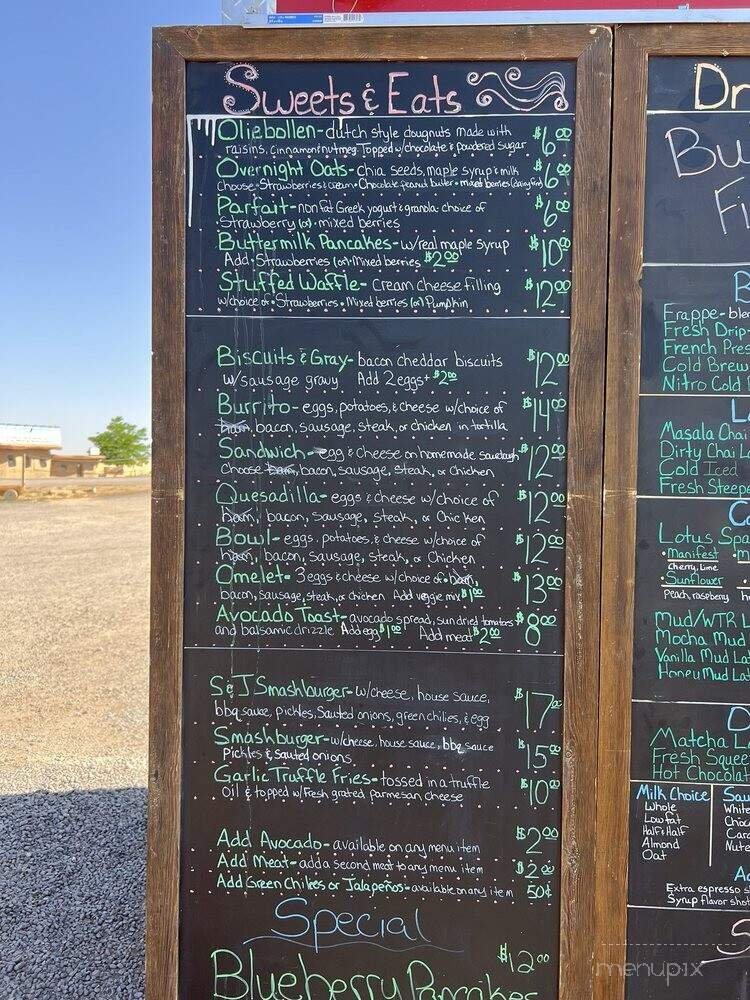 Sweets & Eats
Oliebollen - dutch style doughnuts made with $6.00
raisins, cinnamon & nutmeg. Topped w/chocolate & powdered sugar
Overnight Oats - chia seeds, maple syrup & milk $6.00
Choose - Strawberries & cream • Chocolate peanut butter • mixed berries
Parfait - non fat Greek yogurt & granola - choice of $6.00
Strawberry (or) • mixed berries
Buttermilk Pancakes - w/real maple syrup $10.00
Add • Strawberries (or) Mixed berries $2.00
Stuffed Waffle - Cream cheese filling $12.00
w/choice of • Strawberries • Mixed berries (or) Pumpkin
Biscuits & Gravy - bacon cheddar biscuits $12.00
w/sausage gravy Add 2 eggs + $2.00
Burrito - eggs, potatoes, & cheese w/choice of $14.00
ham, bacon, sausage, steak, or chicken in tortilla
Sandwich - egg & cheese on homemade sourdough $12.00
Choose ham, bacon, sausage, steak, or Chicken
Quesadilla - eggs & cheese w/choice of $12.00
ham, bacon, sausage, steak, or Chicken
Bowl - eggs, potatoes, & cheese w/choice of $12.00
ham, bacon, Sausage, Steak, or Chicken
Omelet - 3 eggs & cheese w/choice of • ham, $13.00
bacon, sausage, steak, or chicken Add veggie mix $1.00
Avocado Toast - avocado spread, sun dried tomatoes $8.00
and balsamic drizzle Add egg $1.00 Add meat $2.00
S&J Smashburger - w/cheese, house sauce, $17.00
bbq sauce, pickles, Sauted onions, green chilies, & egg
Smashburger - w/cheese, house sauce, bbq sauce $15.00
Pickles & Sauted onions
Garlic Truffle Fries - tossed in a truffle $10.00
oil & topped w/Fresh grated parmesan cheese
Add Avocado - available on any menu item $2.00
Add Meat - add a second meat to any menu item $2.00
Add Green Chiles or Jalapeños - available on any item 50¢
Special
Blueberry Pancakes $12.00
Dr
Bu
Fi
B
Frappe - ble
Fresh Drip
French Pres
Cold Brew
Nitro Cold
L
Masala Chai
Dirty Chai La
Cold Iced
Fresh Steepe
C
Lotus Spa
• manifest • m
Cherry, Lime
• Sunflower
Peach, raspberry
Mud/WTR L
Mocha Mud
Vanilla Mud Lat
Honey Mud Lat
O
Matcha La
Fresh Squee
Hot Chocolat
Milk Choice
Whole
Lowfat
Half & Half
Almond
Oat
Sau
White
Choc
Cara
Nute
A
Extra espresso s
Syrup flavor shot
S
menupix